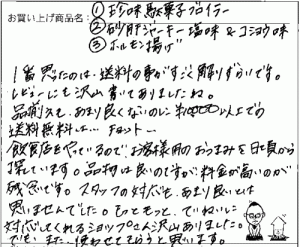 お買い上げ商品名:① 珍味駄菓子ブロイラー
② 砂肝ジャーキー塩味 & コショウ味
③ ホルモン揚げ
1番思ったのは、送料の事がすごく解りずらいです。
レビューにも沢山書いてありましたね。
品揃えも、あまり良くないのに ¥10000以上での
送料無料は… チョット…
飲食店をやっているので、お客様用のおつまみを日頃から
探しています。品物は良いのですが、料金が高いのが
残念です。スタッフの対応も、あまり良いとは
思いませんでした。もっともっと、ていねいに
対応してくれるショップさん沢山ありました。
でも、また、使わせてもらうと思います。